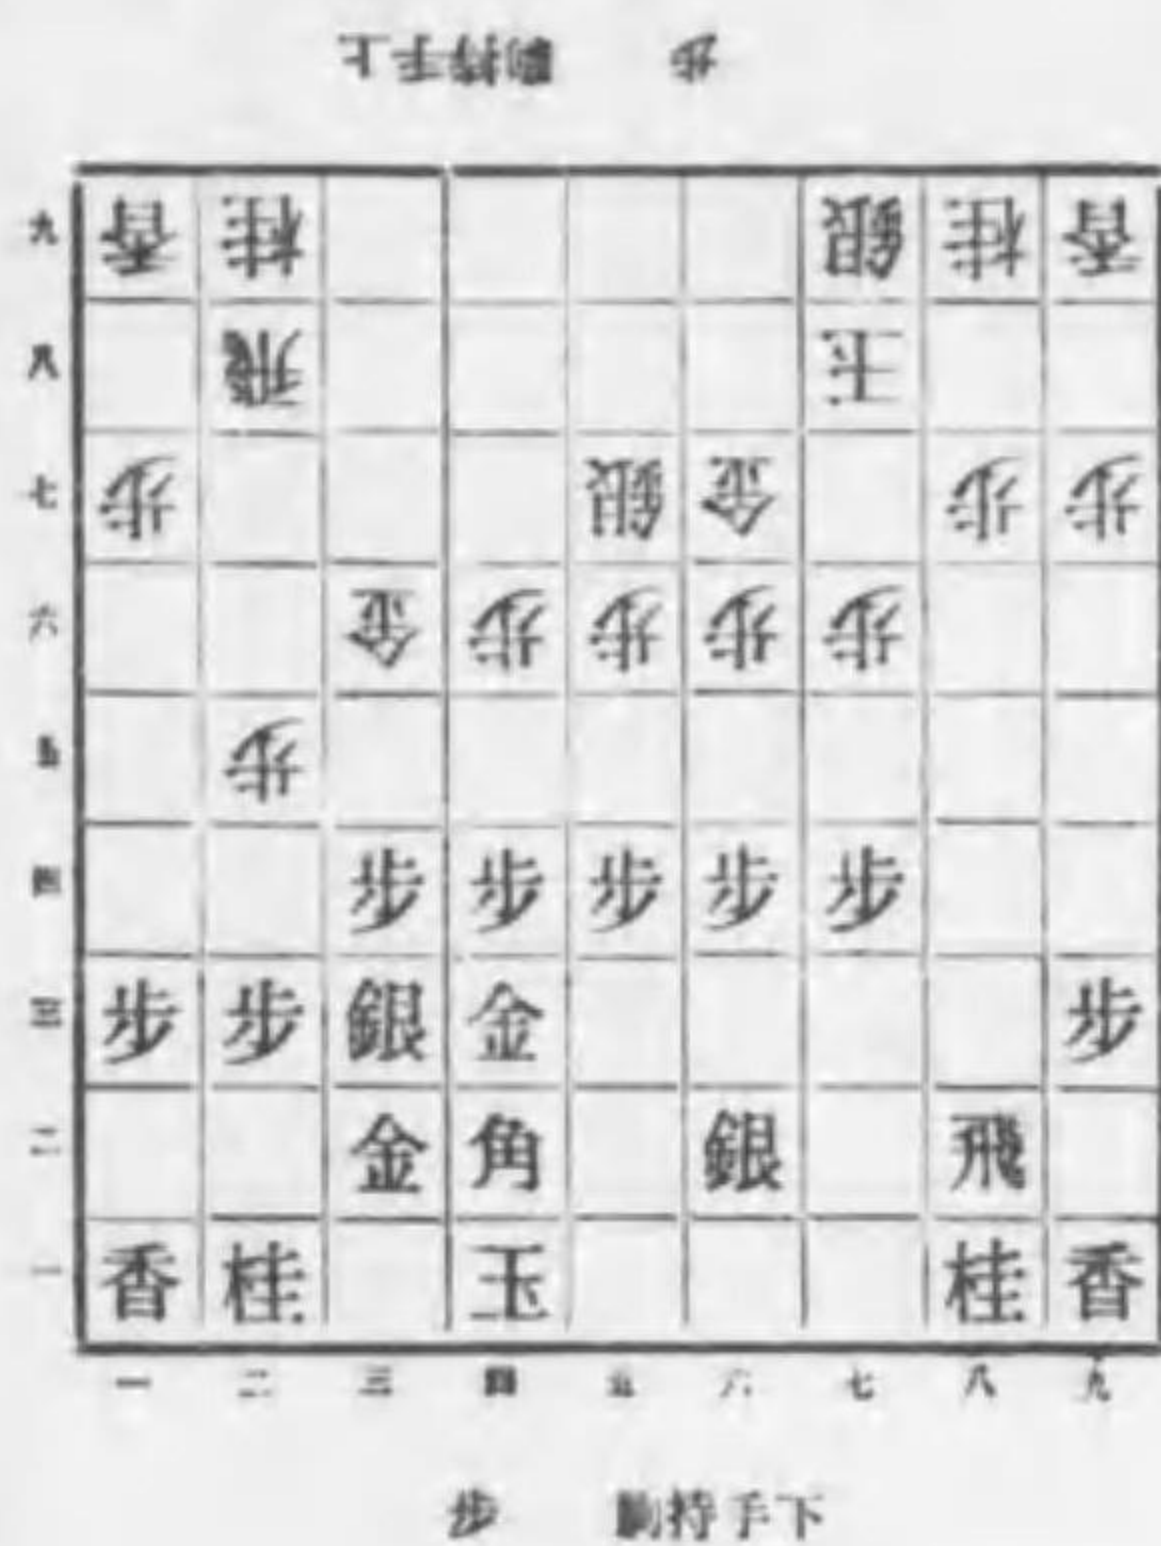 上手持駒　歩
九 香 桂 銀 桂 香
八 飛 玉
七 歩 銀 金 歩 歩
六 金 歩 歩 歩 歩
五 歩
四 歩 歩 歩 歩 歩
三 歩 歩 銀 金 歩
二 金 角 銀 飛
一 香 桂 玉 桂 香
一 二 三 四 五 六 七 八 九
歩　駒持手下